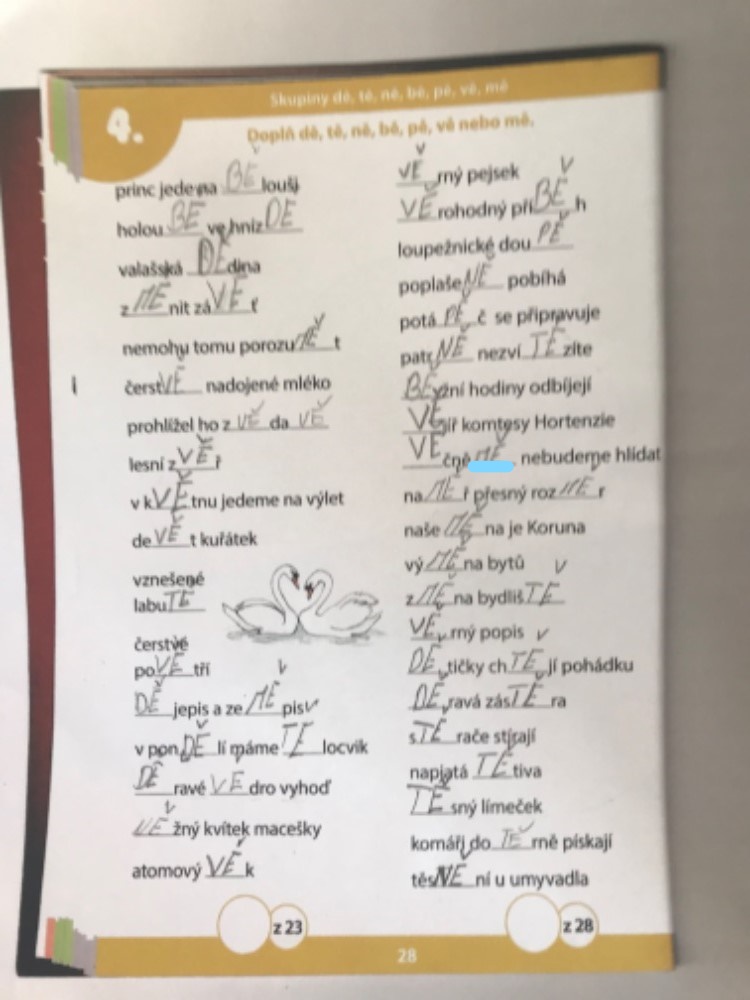 Skupiny dě, tě, ně, bě, pě, vě, mě
4.
Doplň dě, tě, ně, bě, pě, vě nebo mě.
princ jede na BĚ louši
holou BĚ ve hníz DĚ
valašská DĚ dina
z MĚ nit zá VĚ ť
nemohu tomu porozu MĚ t
čerst VĚ nadojené mléko
prohlížel ho z VĚ da VĚ
lesní z VĚ ř
v k VĚ tnu jedeme na výlet
de VĚ t kuřátek
vznešené
labu TĚ
čerstvé
po VĚ tří
DĚ jepis a ze MĚ pis
v pon DĚ lí máme TĚ locvik
DĚ ravé VĚ dro vyhoď
NĚ žný kvítek macešky
atomový VĚ k
z 23
VĚ rný pejsek
VĚ rohodný pří BĚ h
loupežnické dou PĚ
poplaše NĚ pobíhá
potá PĚ č se připravuje
patr NĚ nezví TĚ zíte
BĚ žní hodiny odbíjejí
VĚ jíř komtesy Hortenzie
VĚ čně MĚ nebudeme hlídat
na MĚ ř přesný roz MĚ r
naše MĚ na je Koruna
vý MĚ na bytů
z MĚ na bydliš TĚ
VĚ rný popis
DĚ tičky ch TĚ jí pohádku
DĚ ravá zás TĚ ra
s TĚ rače stírají
napjatá TĚ tiva
TĚ sný límeček
komáři do TĚ rně pískají
těs NĚ ní u umyvadla
z 28
28